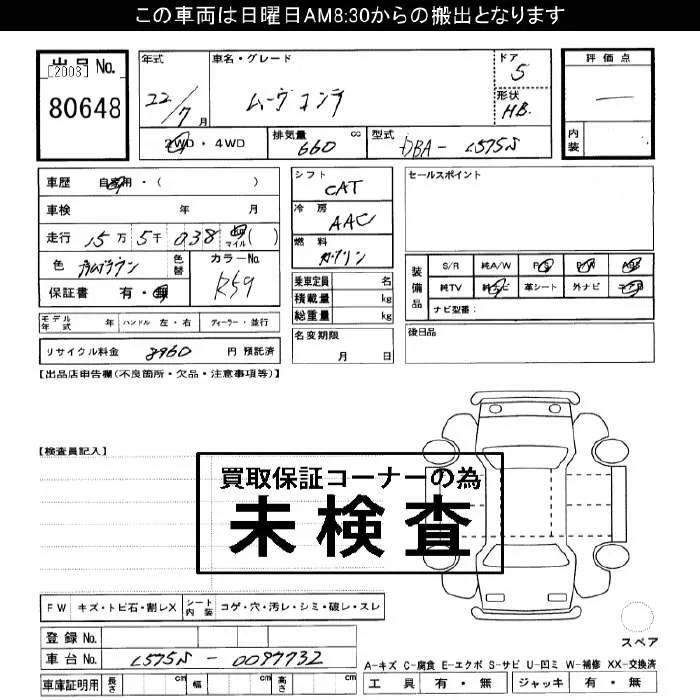 この車両は日曜日AM8:30からの搬出となります
出品No.
[2003]
80648
年式 22/7月
車名・グレード ムーヴ コンテ
ドア 5
形状 HB.
評価点 —
内装
2WD・4WD 排気量 660 cc 型式 DBA- L575S
車歴 自家用・( )
車検 年 月
走行 15万 5千 038 マイル( )
色 色替 カラーNo. R59
保証書 有・無
シフト CAT
冷房 AAC
燃料 ガソリン
乗車定員 名
積載量 kg
総重量 kg
セールスポイント
装備品 S/R 純A/W P/S P/W A/B
純TV 純ナビ 革シート 外ナビ
ナビ型番:
モデル年式 年 ハンドル 左・右 ディーラー・並行
リサイクル料金 8960 円 預託済
名変期限 月 日
後日品
【出品店申告欄(不良箇所・欠品・注意事項等)】
【検査員記入】
買取保証コーナーの為
未検査
FW キズ・トビ石・割レX シート内装 コゲ・穴・汚レ・シミ・破レ・スレ
スペア
登録No.
車台No. L575S - 0097732
A-キズ C-腐食 E-エクボ S-サビ U-凹ミ W-補修 XX-交換済
車庫証明用 長さ cm 幅 cm 高さ cm
工具 有・無 ジャッキ 有・無